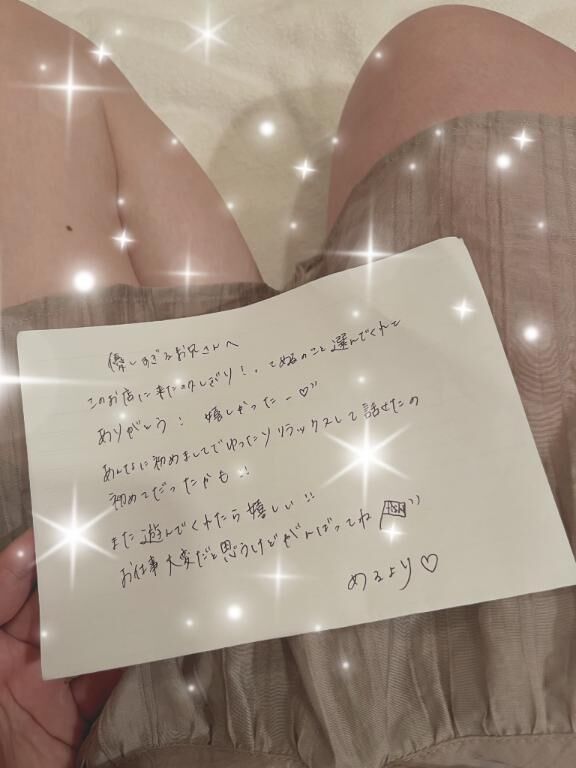 優しすぎるお兄さんへ
このお店に来たの久しぶり！、てめるのこと選んでくれて
ありがとう！ 嬉しかったー♡
あんなに初めましてでゆったりリラックスして話せたの
初めてだったかも!!
また遊んでくれたら嬉しい!!
お仕事大変だと思うけどがんばってね
めるより♡